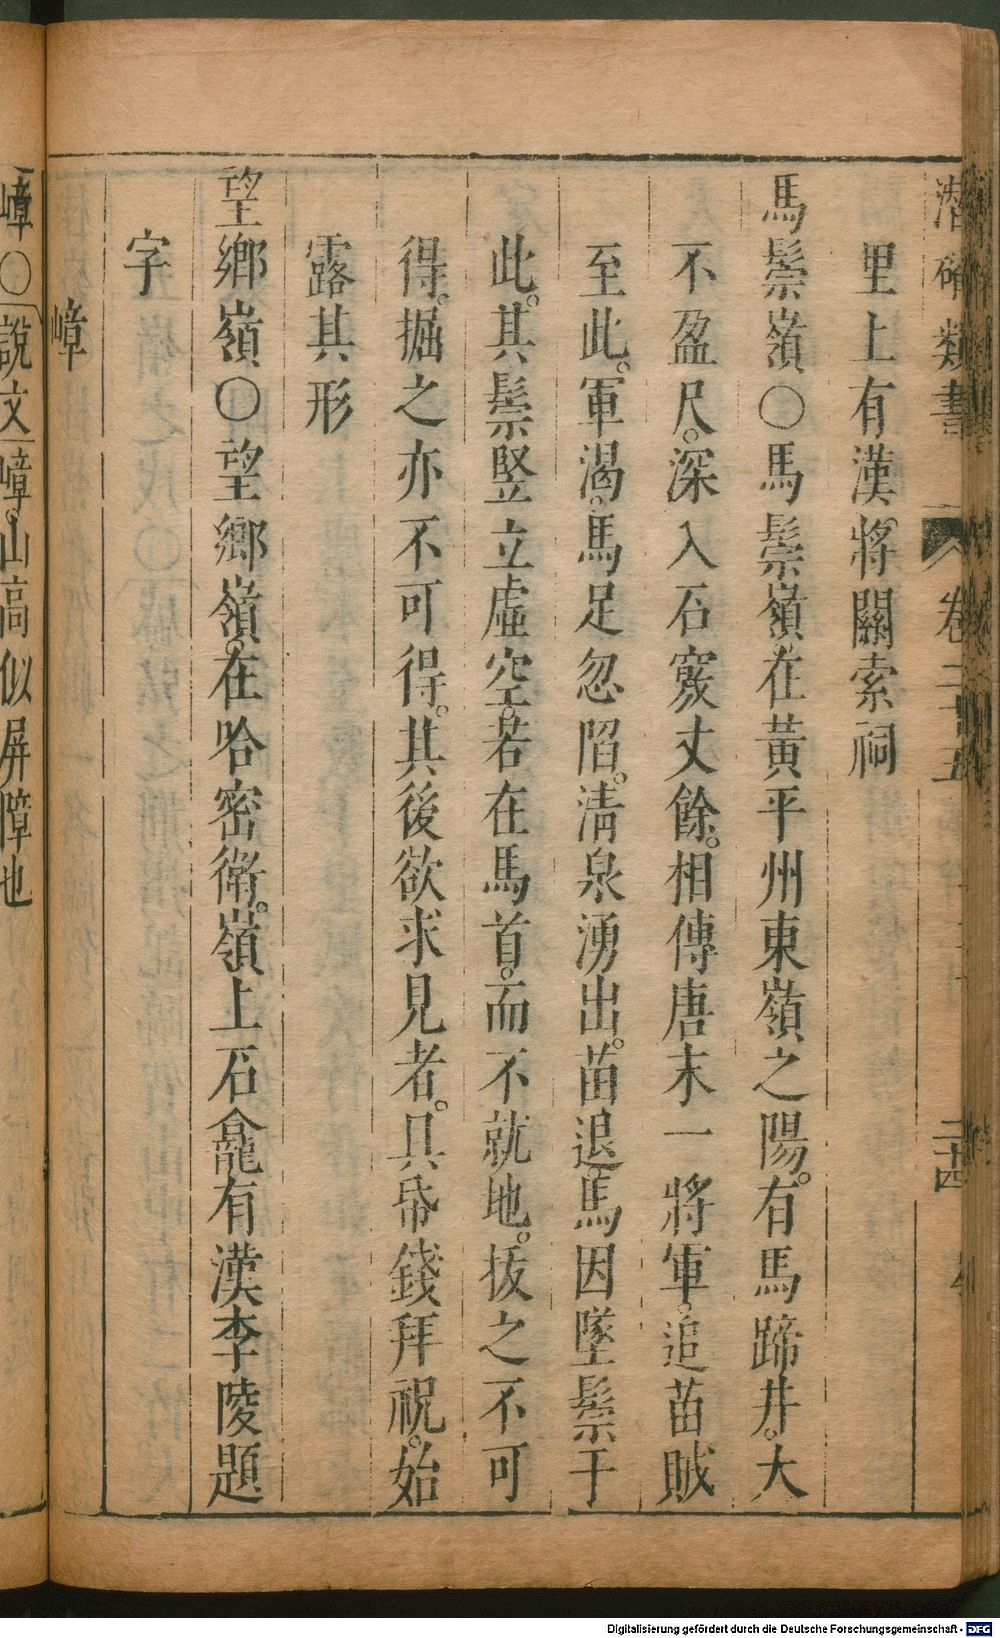 潛確類書 卷二十五 二十四
里上有漢將關索祠
馬鬃嶺〇馬鬃嶺在黃平州東嶺之陽。有馬蹄井。大
不盈尺。深入石竅丈餘。相傳唐末一將軍。追苗賊
至此。軍渴。馬足忽陷。清泉湧出。苗退。馬因墜鬃于
此。其鬃竪立虛空。若在馬首。而不就地。拔之不可
得。掘之亦不可得。其後欲求見者。具帋錢拜祝。始
露其形
望鄉嶺〇望鄉嶺。在哈密衛。嶺上石龕有漢李陵題
字
嶂
嶂〇說文嶂。山高似屏障也
Digitalisierung gefördert durch die Deutsche Forschungsgemeinschaft - DFG